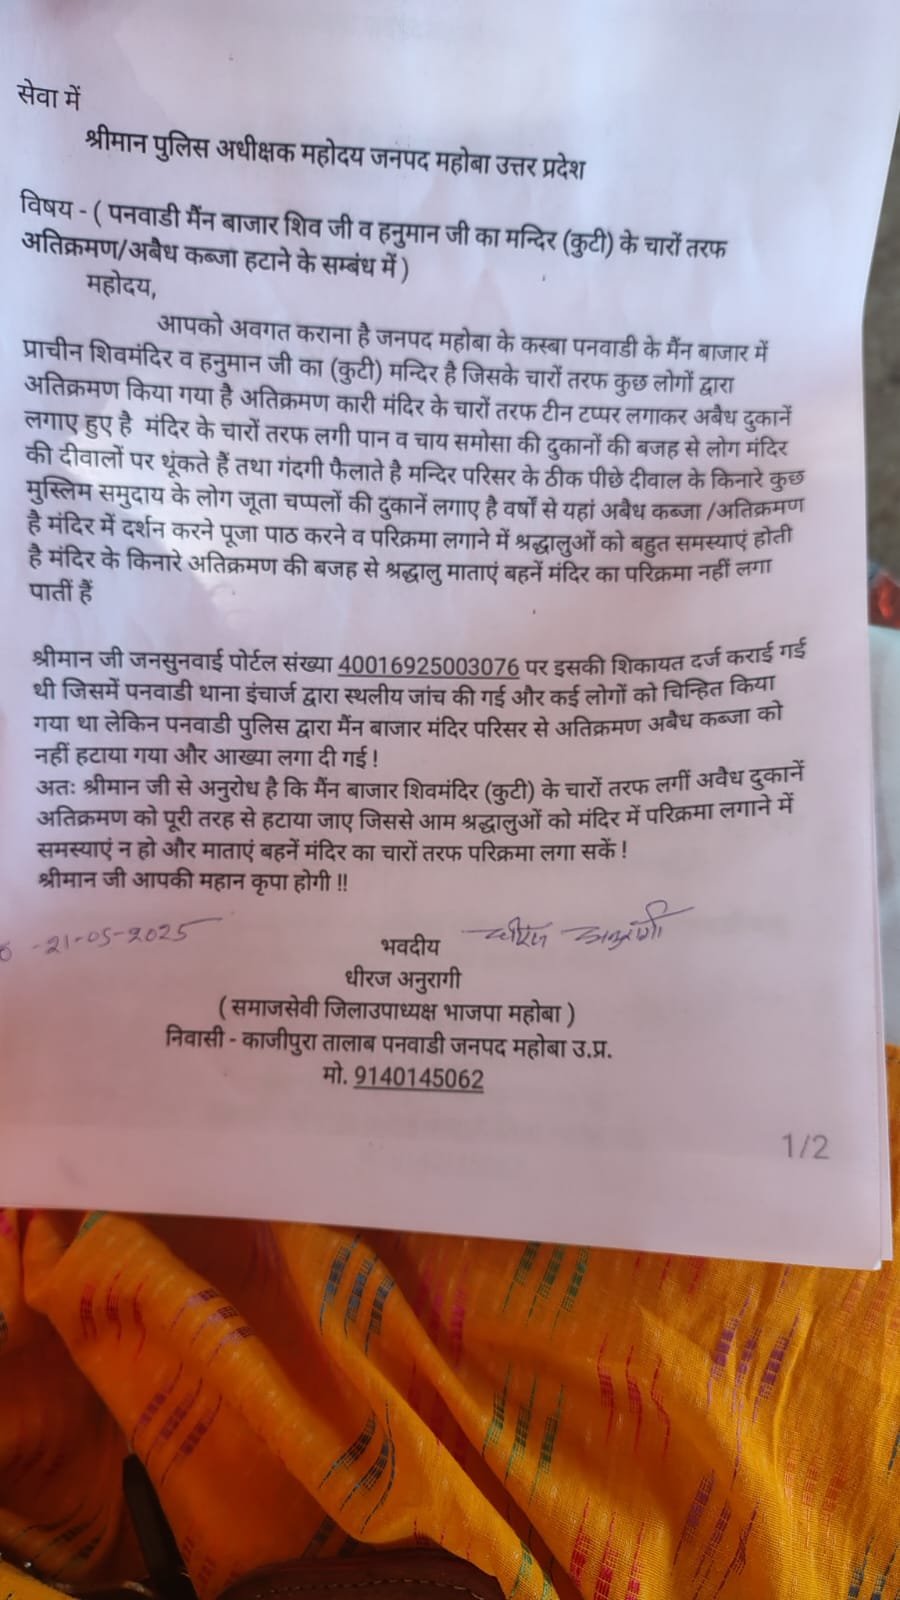 सेवा में
श्रीमान पुलिस अधीक्षक महोदय जनपद महोबा उत्तर प्रदेश
विषय - ( पनवाडी मैंन बाजार शिव जी व हनुमान जी का मन्दिर (कुटी) के चारों तरफ
अतिक्रमण/अबैध कब्जा हटाने के सम्बंध में )
महोदय,
आपको अवगत कराना है जनपद महोबा के कस्बा पनवाडी के मैंन बाजार में
प्राचीन शिवमंदिर व हनुमान जी का (कुटी) मन्दिर है जिसके चारों तरफ कुछ लोगों द्वारा
अतिक्रमण किया गया है अतिक्रमण कारी मंदिर के चारों तरफ टीन टप्पर लगाकर अबैध दुकानें
लगाए हुए है मंदिर के चारों तरफ लगी पान व चाय समोसा की दुकानों की बजह से लोग मंदिर
की दीवालों पर थूंकते हैं तथा गंदगी फैलाते है मन्दिर परिसर के ठीक पीछे दीवाल के किनारे कुछ
मुस्लिम समुदाय के लोग जूता चप्पलों की दुकानें लगाए है वर्षों से यहां अबैध कब्जा /अतिक्रमण
है मंदिर में दर्शन करने पूजा पाठ करने व परिक्रमा लगाने में श्रद्धालुओं को बहुत समस्याएं होती
है मंदिर के किनारे अतिक्रमण की बजह से श्रद्धालु माताएं बहनें मंदिर का परिक्रमा नहीं लगा
पातीं हैं
श्रीमान जी जनसुनवाई पोर्टल संख्या 40016925003076 पर इसकी शिकायत दर्ज कराई गई
थी जिसमें पनवाडी थाना इंचार्ज द्वारा स्थलीय जांच की गई और कई लोगों को चिन्हित किया
गया था लेकिन पनवाडी पुलिस द्वारा मैंन बाजार मंदिर परिसर से अतिक्रमण अबैध कब्जा को
नहीं हटाया गया और आख्या लगा दी गई !
अतः श्रीमान जी से अनुरोध है कि मैंन बाजार शिवमंदिर (कुटी) के चारों तरफ लगीं अवैध दुकानें
अतिक्रमण को पूरी तरह से हटाया जाए जिससे आम श्रद्धालुओं को मंदिर में परिक्रमा लगाने में
समस्याएं न हो और माताएं बहनें मंदिर का चारों तरफ परिक्रमा लगा सकें !
श्रीमान जी आपकी महान कृपा होगी !!
-21-05-2025
धीरज अनुरागी
भवदीय
धीरज अनुरागी
( समाजसेवी जिलाउपाध्यक्ष भाजपा महोबा )
निवासी - काजीपुरा तालाब पनवाडी जनपद महोबा उ.प्र.
मो. 9140145062
1/2